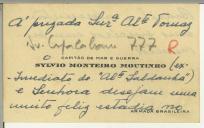 A' prezada Sur.ª Al.te Tomaz
777 R
O CAPITÃO DE MAR E GUERRA
SYLVIO MONTEIRO MOUTINHO (ex-
Imediato do "Al.te Saldanha")
e Senhora desejam uma
muito feliz estadia no
ARMADA BRASILEIRA